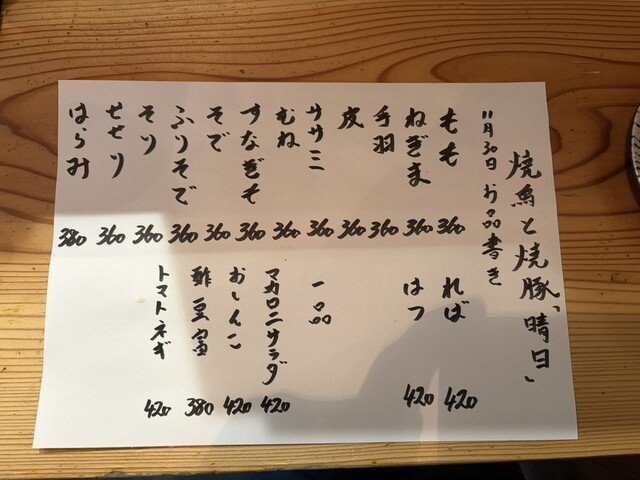 焼鳥と焼豚「晴日」
11月30日 お品書き
もも 360
ねぎま 360
手羽 360
皮 360
ササミ 360
むね 360
すなぎも 360
そで 360
ふりそで 360
そり 360
せせり 360
はらみ 380
れば 420
はつ 420
一品
マカロニサラダ 420
おしんこ 420
酢豆富 380
トマトネギ 420